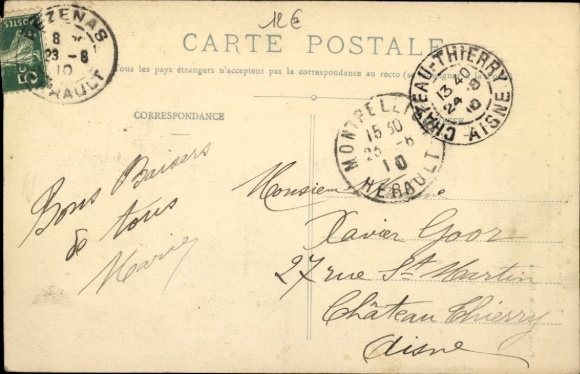 12 €
PEZENAS
8
23 -8
10
HERAULT
POSTES
5
CARTE POSTALE
Tous les pays étrangers n'acceptent pas la correspondance au recto
CORRESPONDANCE
MONTPELLIER
15 30
23 -8
10
HERAULT
CHATEAU-THIERRY
13 40
24 -8
10
AISNE
Bons Baisers
de tous
Marie
Monsieur
Xavier Goor
27 rue St Martin
Château Thierry
Aisne